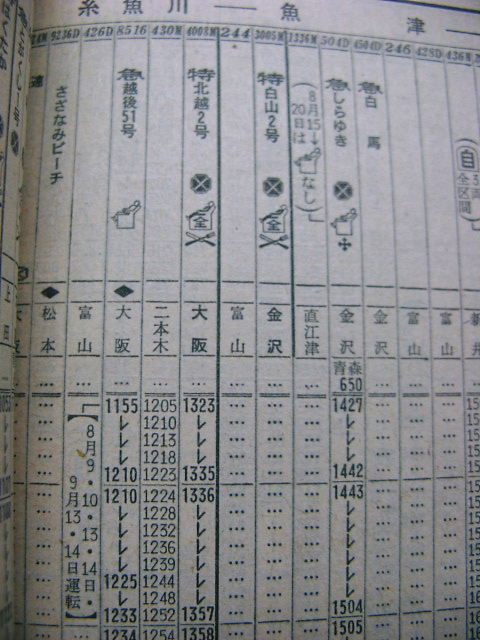 糸魚川――魚津
9236D 426D 8516 430M 4008M 244 3005M 1336M 504D 4504D 246 428D 436M
さざなみビーチ
急越後51号
特北越2号
特白山2号
8月15→20日はなし
急しらゆき
急白馬
自
全区間
全
全
松本 富山 大阪 二本木 大阪 富山 金沢 直江津 金沢 金沢 富山 富山 新井
… … … … … … … … 青森 … … …
650
… 1155 1205 1323 … … … 1427 … … …
… レ 1210 レ … … … レ … … …
… レ 1213 レ … … … レ … … …
… レ 1218 レ … … … レ … … …
… 1210 1223 1335 … … … 1442 … … …
… 1210 1224 1336 … … … 1443 … … …
… レ 1228 レ … … … レ … … …
… レ 1232 レ … … … レ … … …
… レ 1236 レ … … … レ … … …
… レ 1239 レ … … … レ … … …
… 1225 1244 レ … … … レ … … …
… レ 1248 レ … … … 1504 … … …
… 1233 1252 1357 … … … 1505 … … …
1234 1254 1358
8月9・10・13・14日・
9月13・14日運転